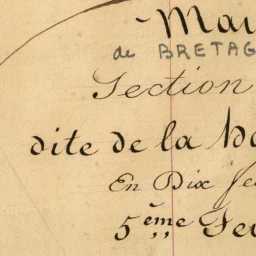 Mau
de BRETAG
Section
dite de la
En Dix
5ème